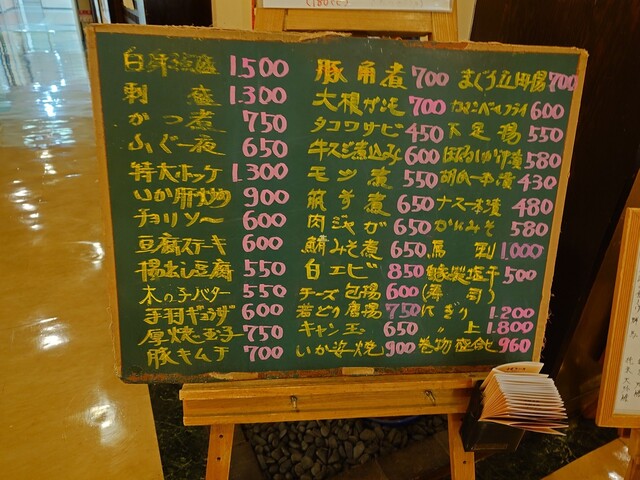 刺 盛 1.300
かつ煮 750
ふぐ一夜 650
特大ホッケ 1.300
いか肝 900
チョリソー 600
豆腐ステーキ 600
揚出し豆腐 550
木の子バター 550
手羽ギョウザ 600
厚焼玉子 750
豚キムチ 700
豚角煮 700
大根がモ 700
タコワサビ 450
牛スジ煮込み 600
モツ煮 550
筑前煮 650
肉ジャガ 650
鯖みそ煮 650
白エビ 850
チーズ包揚 600
若どり唐揚 750
キャン玉 650
いか姿焼 900
まぐろ立田揚 700
カマンベールフライ 600
下足揚 550
580
胡瓜一本漬 430
ナス一本漬 480
かにみそ 580
馬刺 1.000
自家製塩干 500
(寿司)
にぎり 1.200
〃 上 1.800
巻物 960